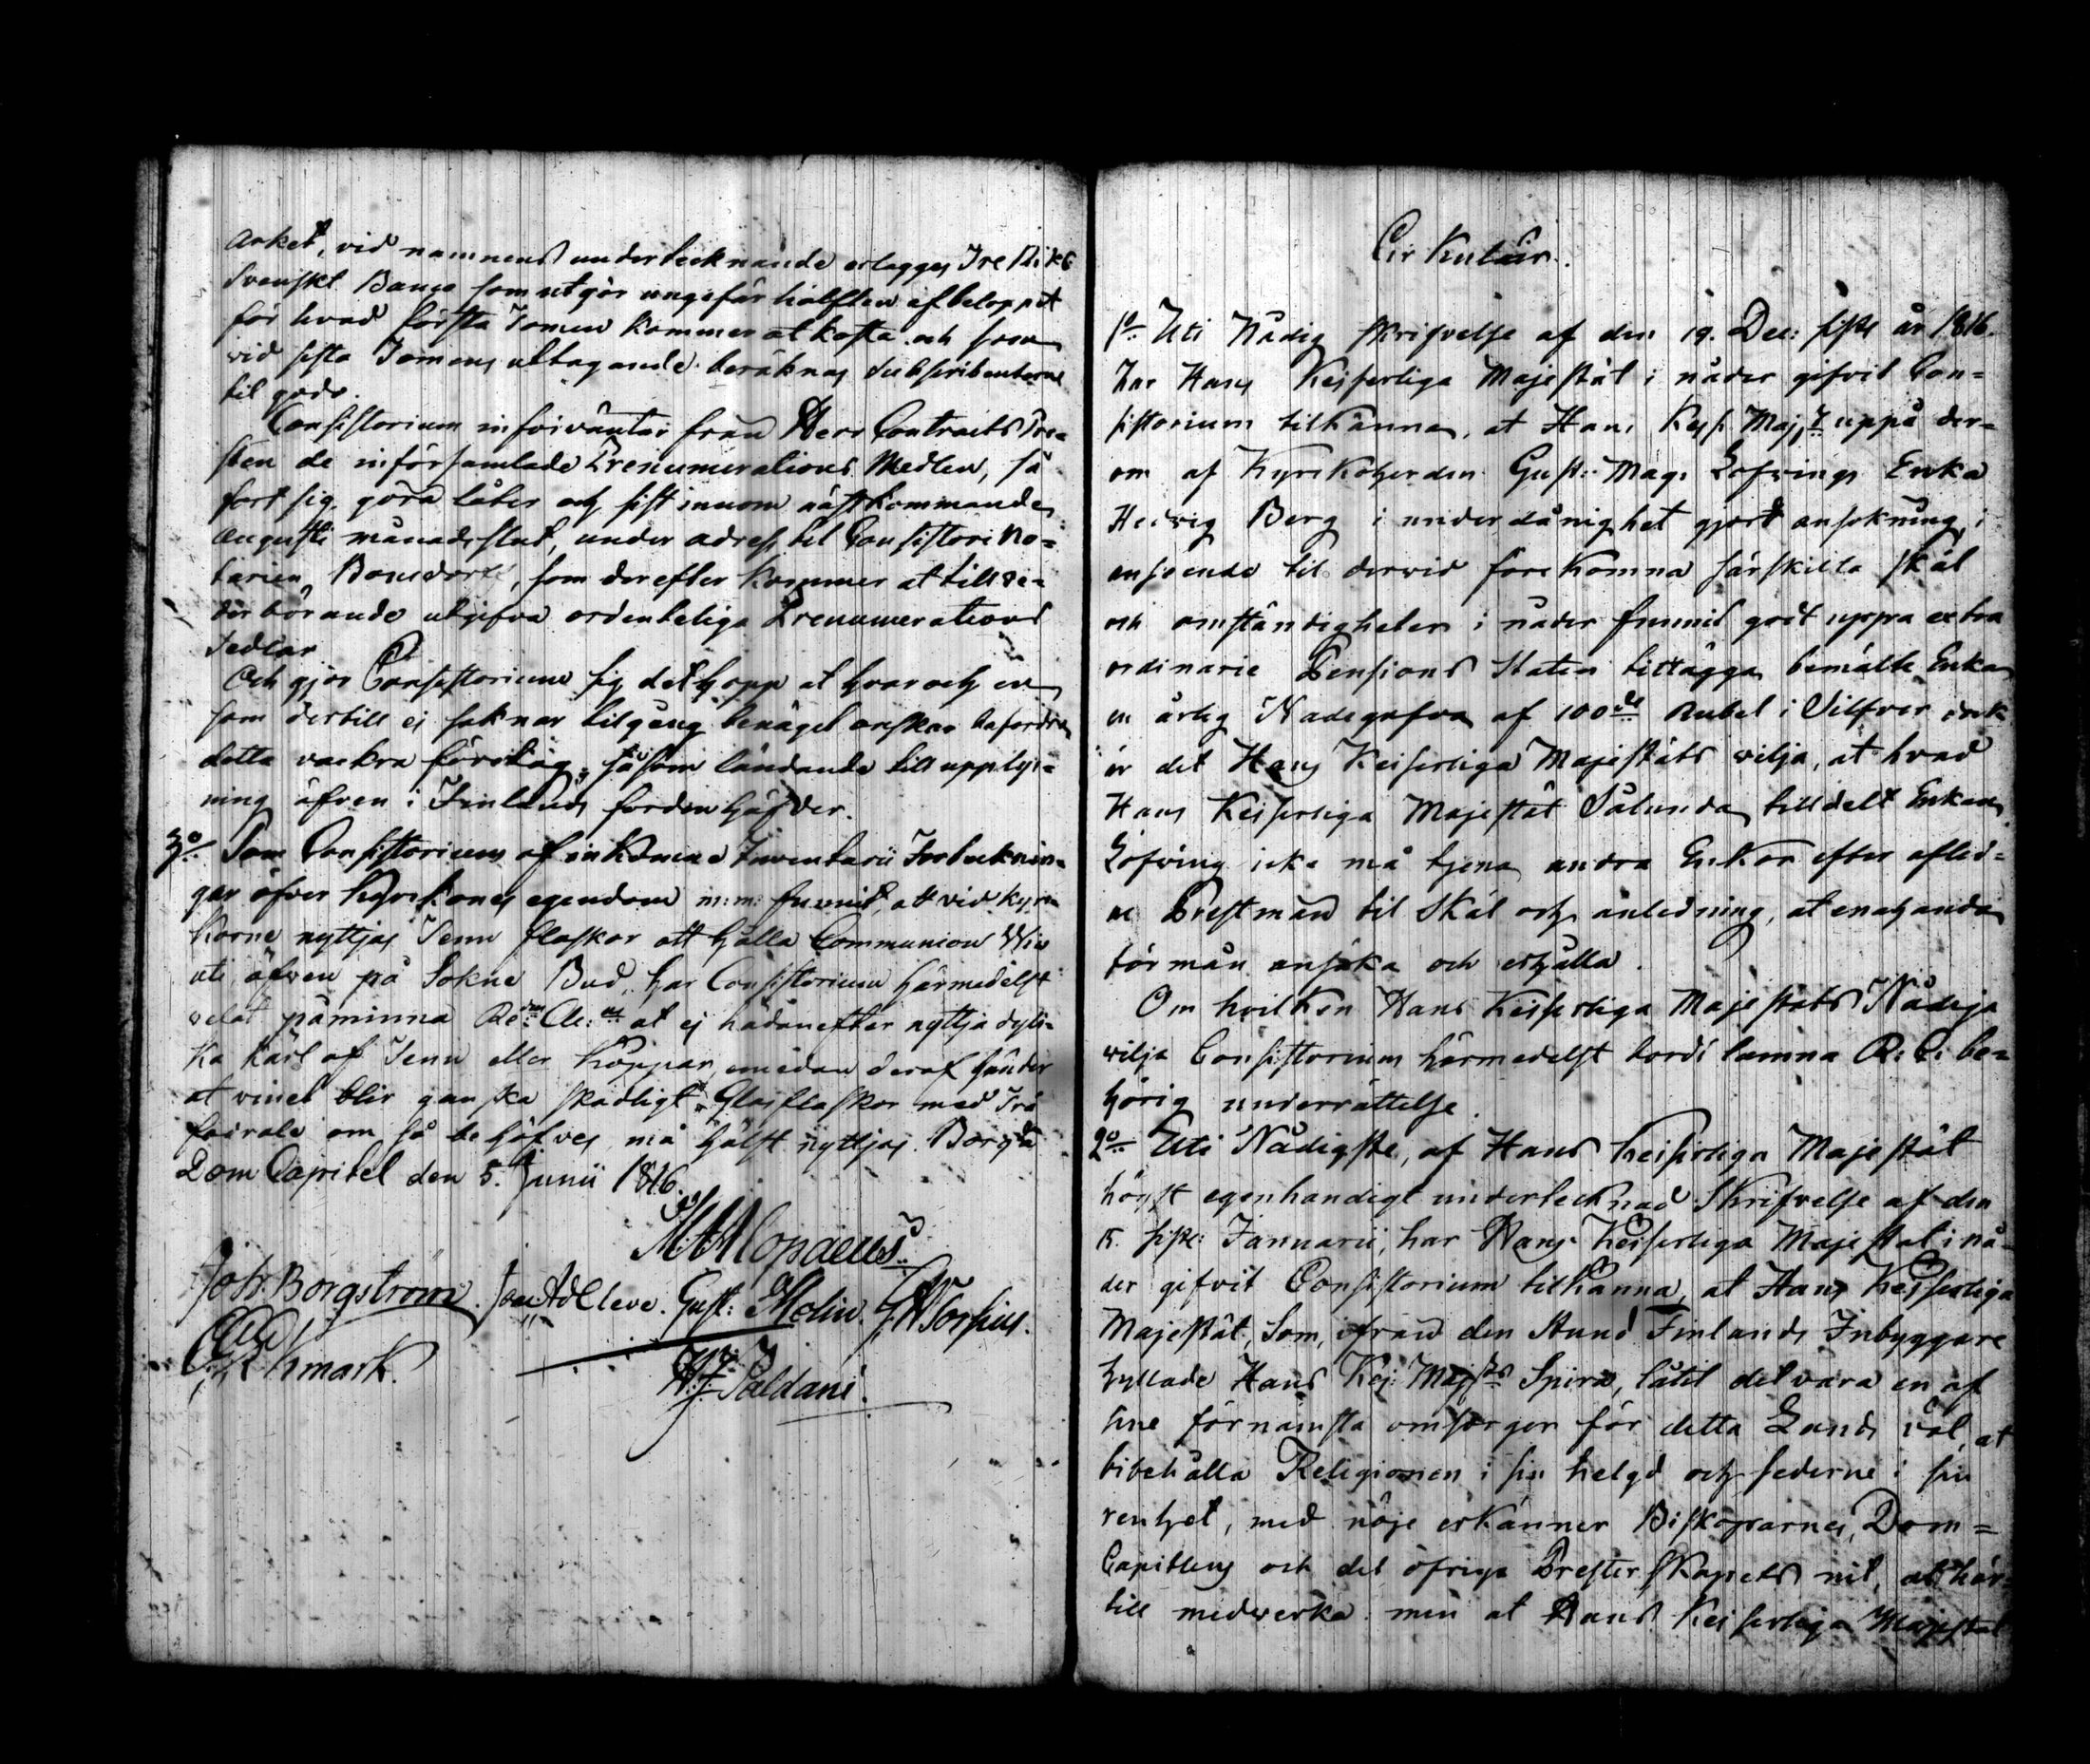 arket, vid namnens undertecknande erlägges Tre Riks
Svenskt Banco som utgör ungefär hälften af beloppet
för hvad första Tomen kommer at kosta och som
vid sista Tomens uttagande beräknas Subscribenterne
til godo.
Consistorium införväntar från Herr Contracts Pro=
sten de införsamlade Prenumerations Medlen, så
fort sig göra låter och sist innom nästkommande
Augusti månads slut, under adress til Consistorii No=
tarien Bonsdorff, som derefter kommer at till ve=
derbörande utgifva ordenteliga Prenumerations
Sedlar
Och gjör Consistorium sig det hopp at hvar och en
som dertill ej saknar tilgång benäget önskar befordra
detta vackra förslag, såsom ländande till upplys=
ning äfven i Finlands fordna häfder.
3o Som Consistorium af inkomne Inventarii Forteknin=
gar öfver kyrkones egendom m:m: funnit, att vid kyr=
korne nyttjas Tenn flaskor att hålla Communion Win
uti äfwen på Sokne Bud, har Consistorium härmedelst
velat påminna Rdm Cl: at ej hädanefter nyttja dyli=
ka kärl af Tenn eller Koppar, emedan deraf händer
at vinet blir ganska skadligt. Glasflaskor med Trä
foirale om så behöfves må hälst nyttjas. Borgå
Dom Capitel den 5. Junii 1816.
M. Alopaeus
Joh: Borgström. Joh Ad Cleve. Gust: Molin.
Ekmark.
Paldani.
Cirkulair.
1o Uti Nådig Skrifvelse af den 19. Dec: sistl år 1816.
har Hans Keiserliga Majestät i nåder gifvit Con=
sistorium tilkänna, at Hans Kejs. Maj:t uppå der=
om af Kyrkoherden Gust: Mag: Löfvings Enka
Hedvig Berg i underdånighet gjord ansökning, i
anseende til dervid förekomna särskilta skäl
och omständigheter i nåder funnit godt uppå extra
ordinarie Pensions Staten tillägga bemälte Enka
en årlig Nådegåfva af 100de Rubel i Silfver dock
är det Hans Keiserliga Majestäts vilja, at hvad
Hans Keiserliga Majestät Sålunda tilldelt Enkan
Löfving icke må tjena andra Enkor efter aflid=
ne Prestmän til Skäl och anledning, at enahanda
förmån ansöka och erhålla.
Om hvilken Hans Keiserliga Majestäts Nådiga
vilja Consistorium härmedelst bordt lämna R: C: be=
hörig underrättelse.
2o Uti Nådigste, af Hans Keiserliga Majestät
högst egenhändigt undertecknad Skrifvelse af den
15. sistl: Januarii, har Hans Keiserliga Majestät i nå=
der gifvit Consistorium tilkänna, at Hans Keiserliga
Majestät, Som, ifrån den Stund Finlands Inbyggare
hyllade Hans Kej: Maj:ts Spira, låtit det vara en af
sine förnämsta omsorger för detta Lands väl, at
bibehålla Religionen i sin helgd och sederne i sin
renhet, med nöje erkänner Biskoparnes, Dom=
Capitlens och det öfriga Presterskapets nit, at här=
till medverka men at Hans Keiserliga Majestät